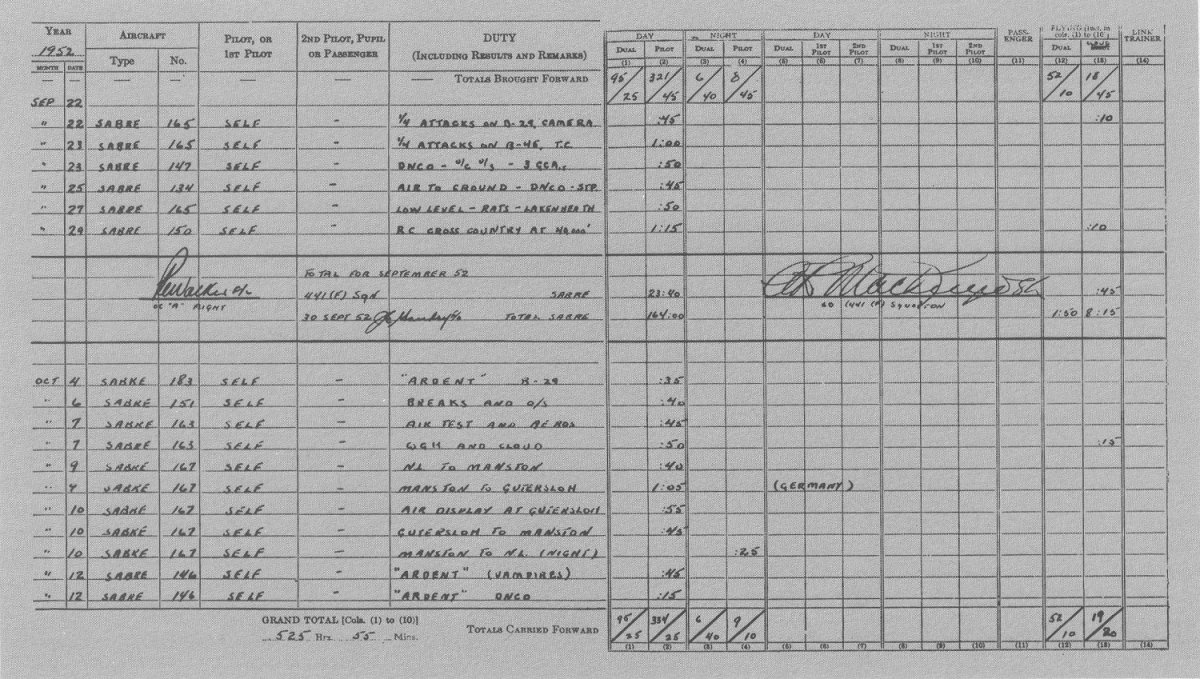 YEAR 1952 AIRCRAFT PILOT, OR 1ST PILOT 2ND PILOT, PUPIL OR PASSENGER DUTY (INCLUDING RESULTS AND REMARKS) DAY NIGHT DAY NIGHT PASS- ENGER FLYING cols. (1) to (10) LINK TRAINER
MONTH DATE Type No. DUAL PILOT DUAL PILOT DUAL 1ST PILOT 2ND PILOT DUAL 1ST PILOT 2ND PILOT DUAL CLOUD
(1) (2) (3) (4) (5) (6) (7) (8) (9) (10) (11) (12) (13) (14)
— — — — — — — TOTALS BROUGHT FORWARD 95/25 321/45 6/40 8/45 52/10 18/45
SEP 22
" 22 SABRE 165 SELF - 1/4 ATTACKS ON B-29, CAMERA :45 :10
" 23 SABRE 165 SELF - 1/4 ATTACKS ON B-45, T.C. 1:00
" 23 SABRE 147 SELF - DNCO - U/C U/S - 3 GCA,s :50
" 25 SABRE 134 SELF - AIR TO GROUND - DNCO - STP. :45
" 27 SABRE 165 SELF - LOW LEVEL - RATS - LAKENHEATH :50
" 29 SABRE 150 SELF - RC CROSS COUNTRY AT 40,000' 1:15 :10
TOTAL FOR SEPTEMBER 52
Walker F/L 441 (F) SQN SABRE 23:40 :45
OC "A" FLIGHT CO 441 (F) SQUADRON
30 SEPT 52 TOTAL SABRE 164:00 1:50 8:15
OCT 4 SABRE 183 SELF - "ARDENT" B-29 :35
" 6 SABRE 151 SELF - BREAKS AND O/S :40
" 7 SABRE 163 SELF - AIR TEST AND AEROS :45
" 7 SABRE 163 SELF - QGH AND CLOUD :50 :15
" 9 SABRE 167 SELF - NL TO MANSTON :40
" 9 SABRE 167 SELF - MANSTON TO GUTERSLOH 1:05 (GERMANY)
" 10 SABRE 167 SELF - AIR DISPLAY AT GUTERSLOH :55
" 10 SABRE 167 SELF - GUTERSLOH TO MANSTON :45
" 10 SABRE 167 SELF - MANSTON TO NL (NIGHT) :25
" 12 SABRE 146 SELF - "ARDENT" (VAMPIRES) :45
" 12 SABRE 146 SELF - "ARDENT" DNCO :15
GRAND TOTAL [Cols. (1) to (10)] TOTALS CARRIED FORWARD 95/25 334/25 6/40 9/10 52/10 19/20
525 Hrs. 55 Mins.
(1) (2) (3) (4) (5) (6) (7) (8) (9) (10) (11) (12) (13) (14)